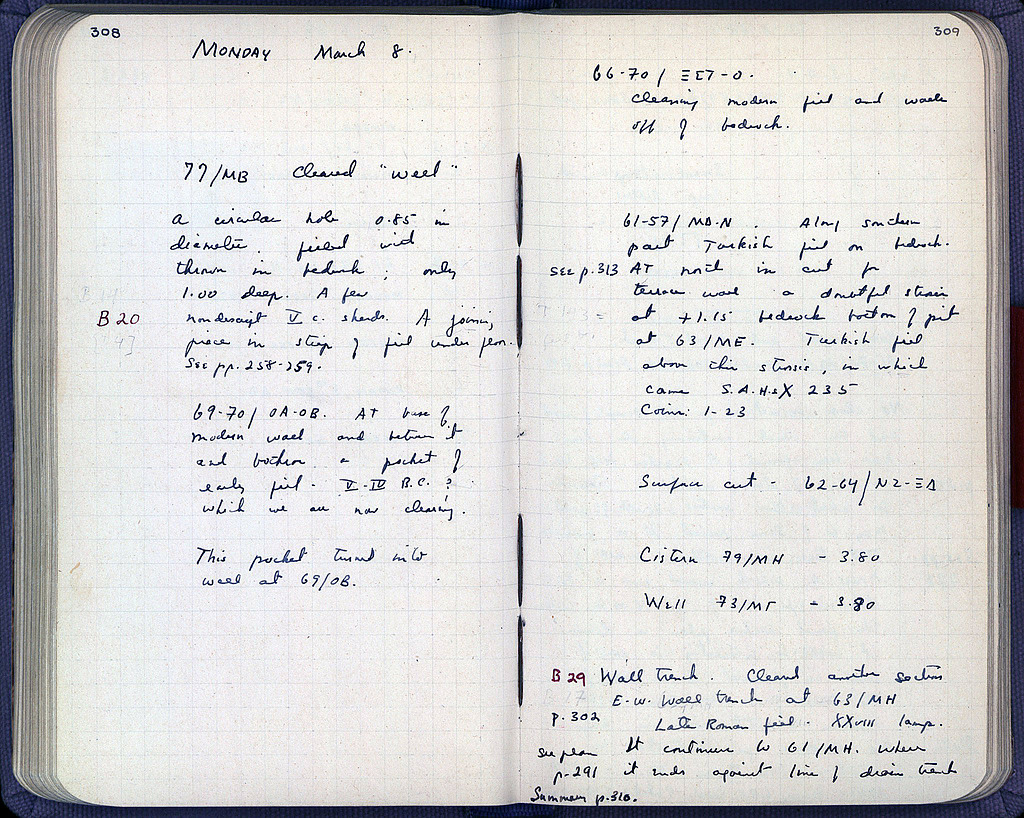 308
Monday March 8.
77/MB Cleared "well"
A circular hole 0.85 in
diameter. filled with
thrown in bedrock; only
1.00 deep. A few
B 20
nondescript V c. sherds. A joining
piece in strip of fill under floor.
See pp. 258-259.
69-70/OA-OB. At base of
modern wall and between it
and bothros a pocket of
early fill - V-IV B.C.?
which we are now clearing.
This pocket turned into
well at 69/OB.
309
66-70/ΞΣΤ-Ο.
Cleaning modern fill and walls
off of bedrock.
61-57/MΔ-N Along southern
part Turkish fill on bedrock.
see p. 313 At north in cut for
terrace wall a doubtful strosis
at +1.15 bedrock bottom of pit
at 63/ME. Turkish fill
above this strosis, in which
came S.A.H.
235
Coins: 1-23
Surface cut - 62-64/
Cistern 79/MH - 3.80
Well 73/MΓ - 3.80
B 29 Wall trench. Cleared another section
E-W. Wall trench at 63/MH
p. 302 Late Roman fill - XXVIII lamp.
see plan It continues to 61/MH. where
p. 291 it ends against line of drain trench
Summary p. 310.